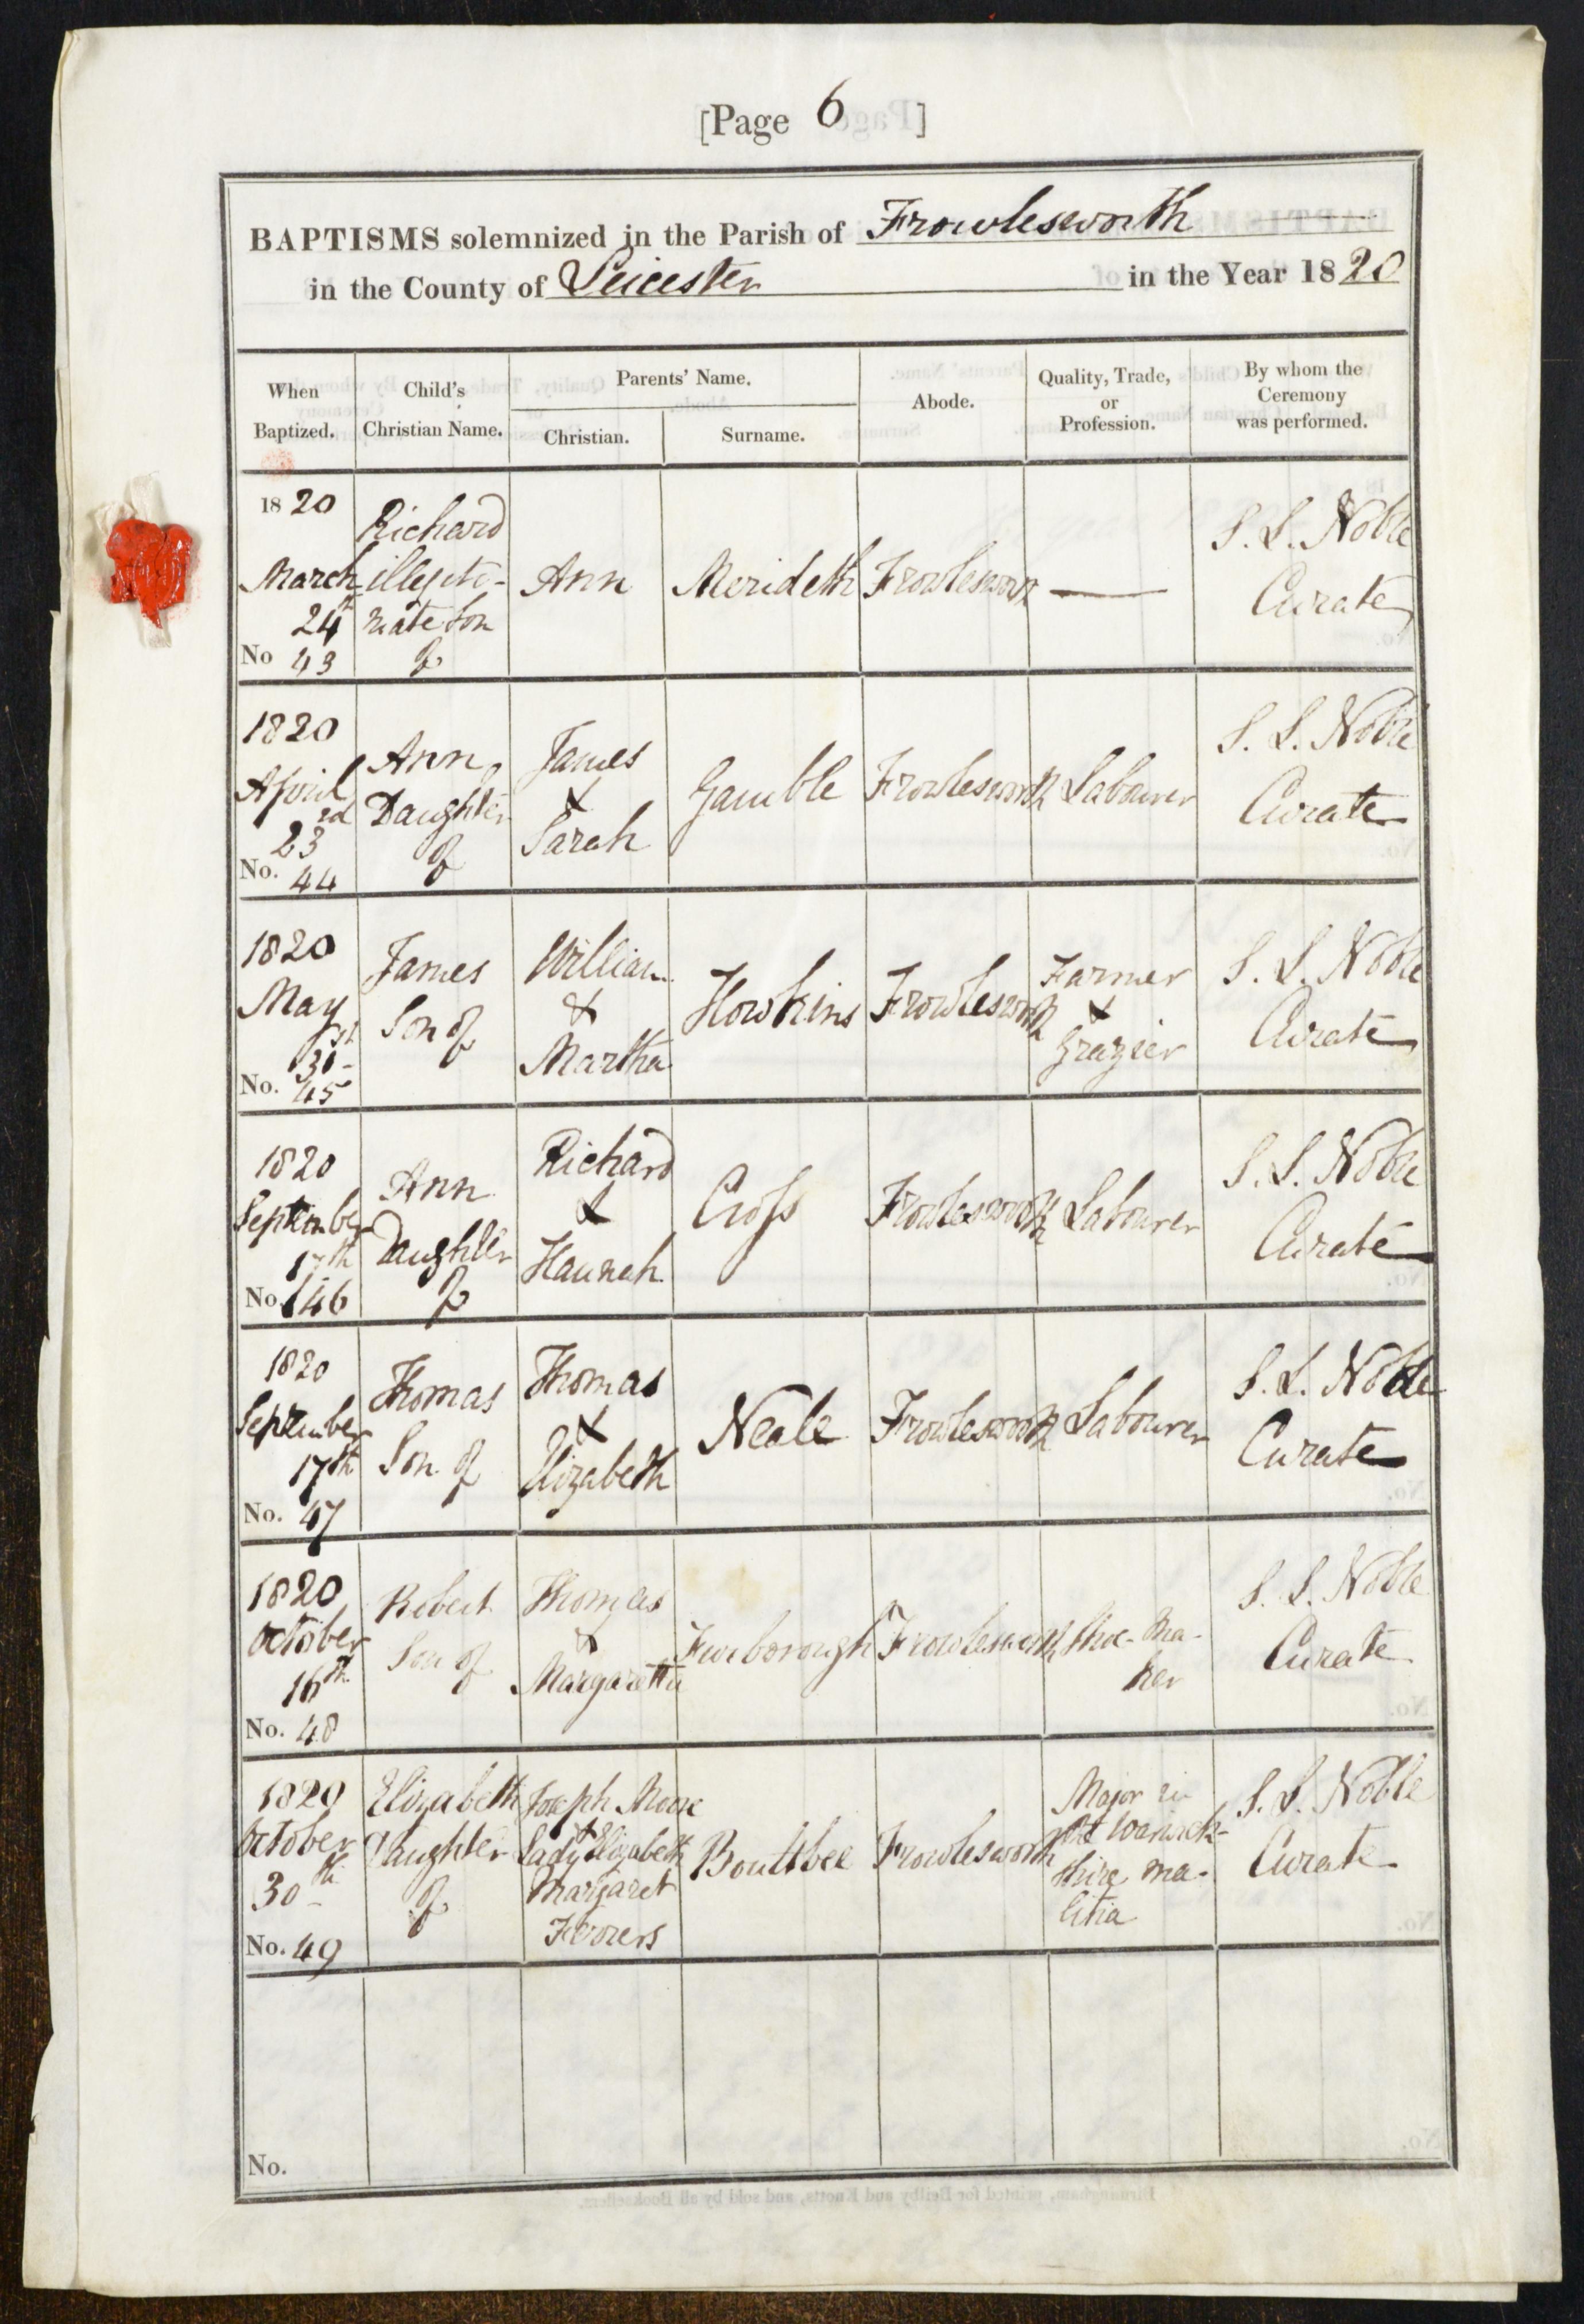 [Page 6 ]
BAPTISMS solemnized in the Parish of Frowlesworth
in the County of Leicester in the Year 1820
When
Baptized.
Child's
Christian Name.
Parents' Name.
Christian.
Surname.
Abode.
Quality, Trade,
or
Profession.
By whom the
Ceremony
was performed.
1820
March
24th
No 43
Richard
illegiti-
mate Son
of
Ann
Merideth
Frowlesworth
S. L. Noble
Curate
1820
April
23rd
No. 44
Ann
Daughter
of
James
&
Sarah
Gamble
Frowlesworth
Labourer
S. L. Noble
Curate
1820
May
31st
No. 45
James
Son of
William
&
Martha
Howkins
Frowlesworth
Farmer
&
Grazier
S. L. Noble
Curate
1820
September
17th
No. 46
Ann
Daughter
of
Richard
&
Hannah
Cross
Frowlesworth
Labourer
S. L. Noble
Curate
1820
September
17th
No. 47
Thomas
Son of
Thomas
&
Elizabeth
Neale
Frowlesworth
Labourer
S. L. Noble
Curate
1820
October
16th
No. 48
Robert
Son of
Thomas
&
Margaretta
Frowlesworth
Shoe-ma-
ker
S. L. Noble
Curate
1820
October
30th
No. 49
Elizabeth
Daughter
of
Joseph Moore
& Lady Elizabeth
Margaret
Ferrers
Boultbee
Frowlesworth
Major in
the Warwick-
shire ma-
litia
S. L. Noble
Curate
No.
Birmingham, printed for Beilby and Knotts, and sold by all Booksellers.